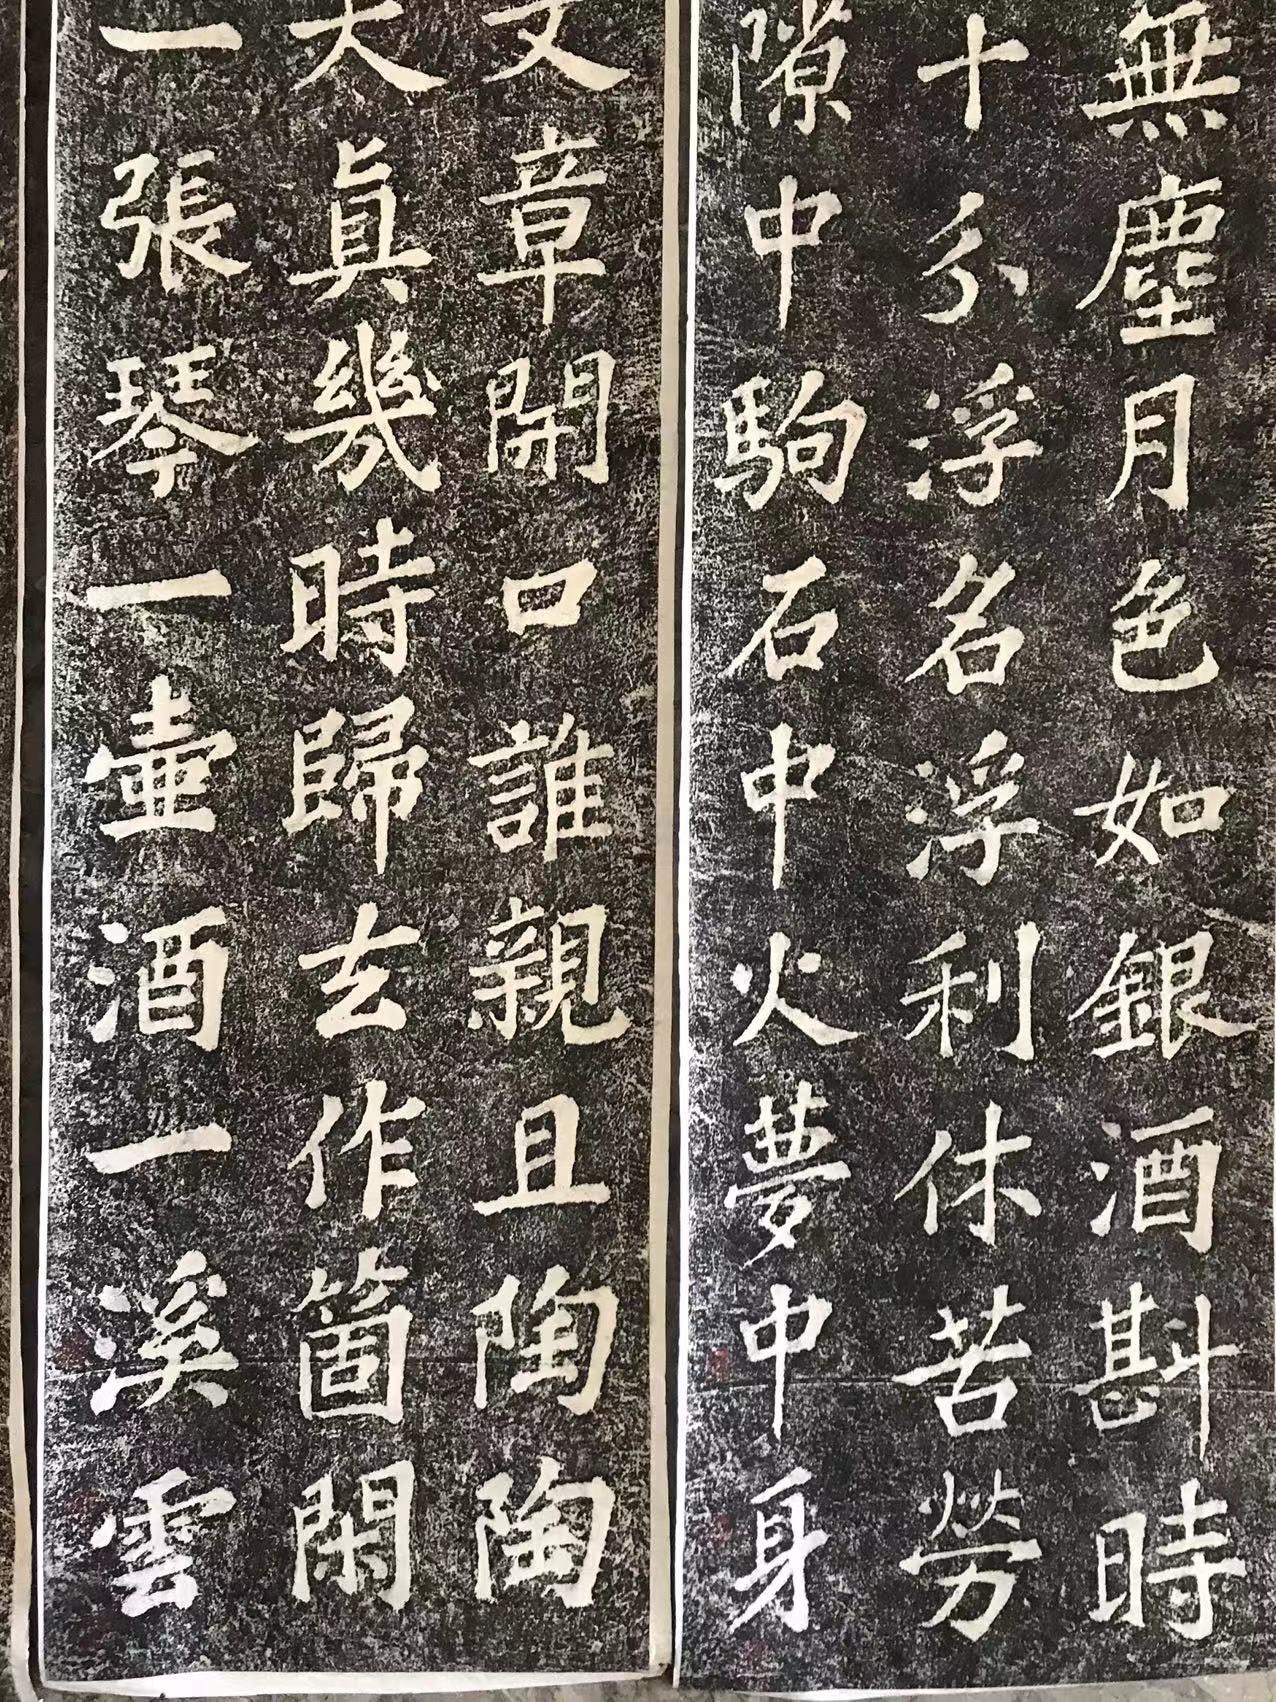 無塵月色如銀酒斟時
十分浮名浮利休苦勞
隙中駒石中火夢中身
文章開口誰親且陶陶
天眞幾時歸去作箇閑
一張琴一壺酒一溪雲